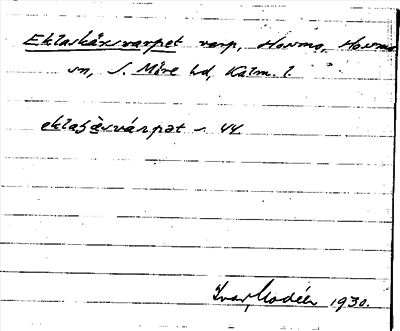 Eklaskärsvarpet varp, Hossmo, Hossmo
sn, S. Möre hd, Kalm. l.
eklaʂæsvárpət ~ 44
Ivar Modéer 1930.